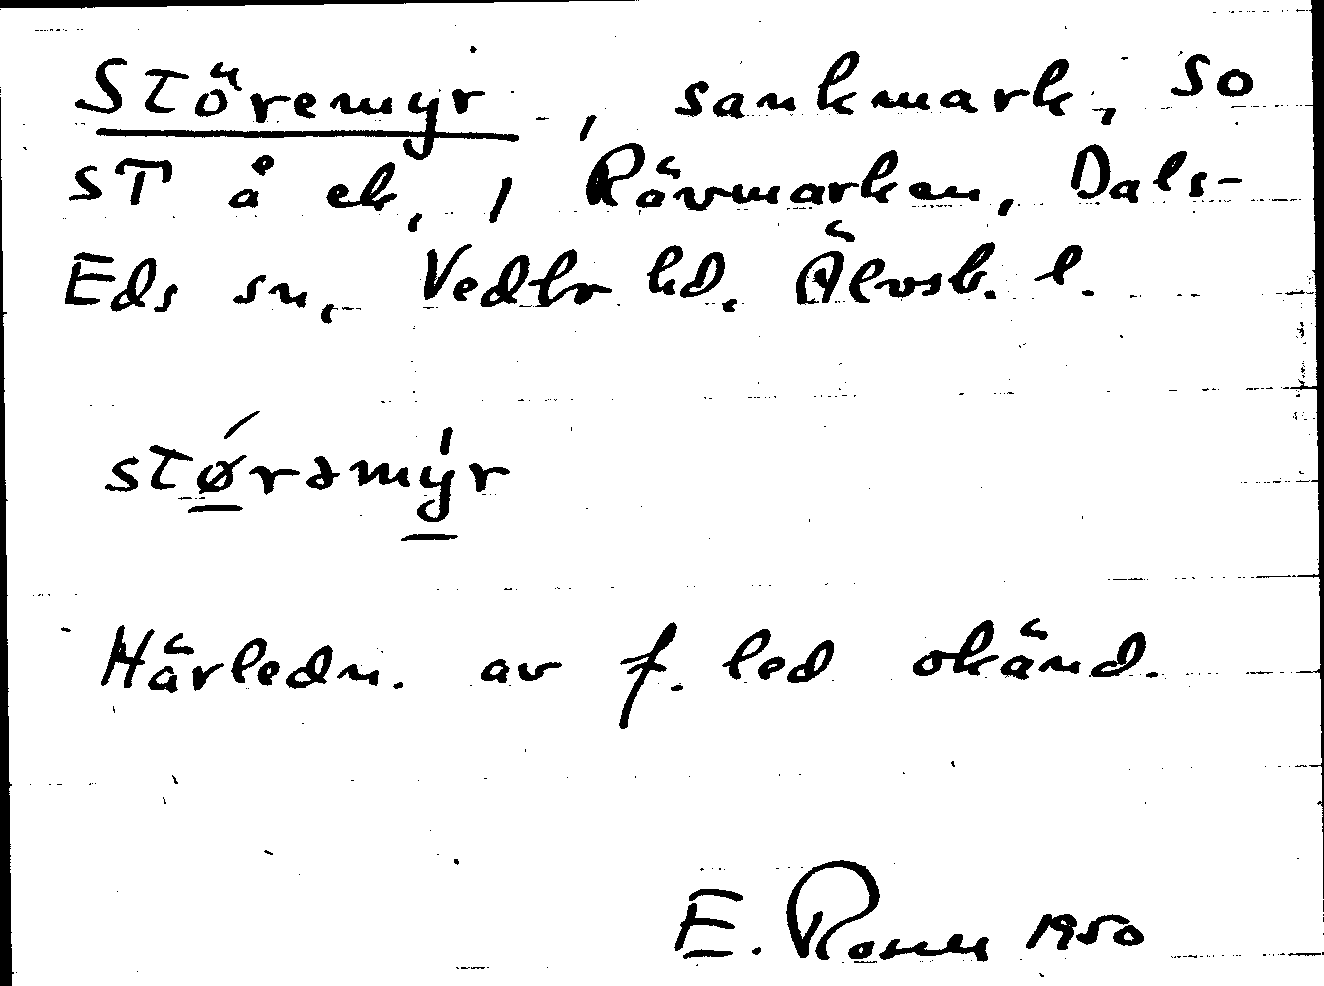 Störemyr, sankmark, SO
ST å ek, 1 Rävmarken, Dals-
Eds sn, Vedbo hd, Älvsb. l.
stǿrəmy̍r
Härledn. av f. led okänd.
E. 1950